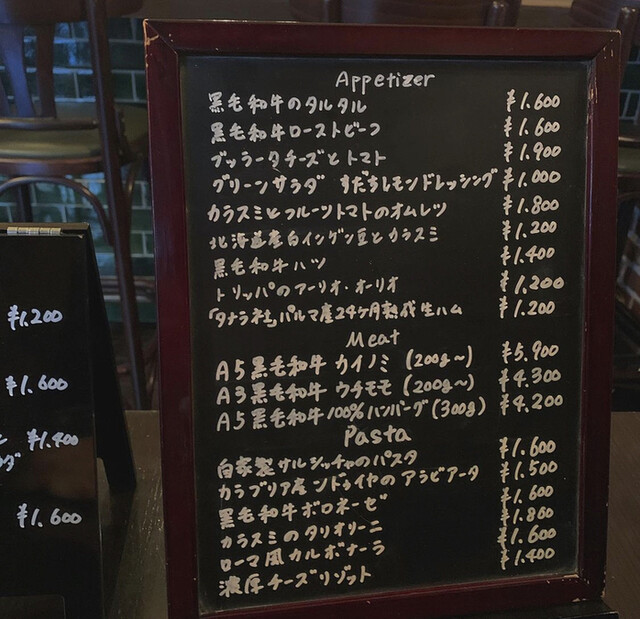 Appetizer
黒毛和牛のタルタル ¥1.600
黒毛和牛ローストビーフ ¥1.600
ブッラータチーズとトマト ¥1.900
グリーンサラダ すだちレモンドレッシング ¥1.000
カラスミとフルーツトマトのオムレツ ¥1.800
北海道産白インゲン豆とカラスミ ¥1.200
黒毛和牛ハツ ¥1.400
トリッパのアーリオ・オーリオ ¥1.200
「タナラ社」パルマ産24ケ月熟成生ハム ¥1.200
Meat
A5黒毛和牛 カイノミ (200g〜) ¥5.900
A3黒毛和牛 ウチモモ (200g〜) ¥4.300
A5黒毛和牛100%ハンバーグ(300g) ¥4.200
Pasta
自家製サルシッチャのパスタ ¥1.600
カラブリア産ンドゥイヤのアラビアータ ¥1.500
黒毛和牛ボロネーゼ ¥1.600
カラスミのタリオリーニ ¥1.800
ローマ風カルボナーラ ¥1.600
濃厚チーズリゾット ¥1.400
¥1.200
¥1.600
¥1.400
¥1.600